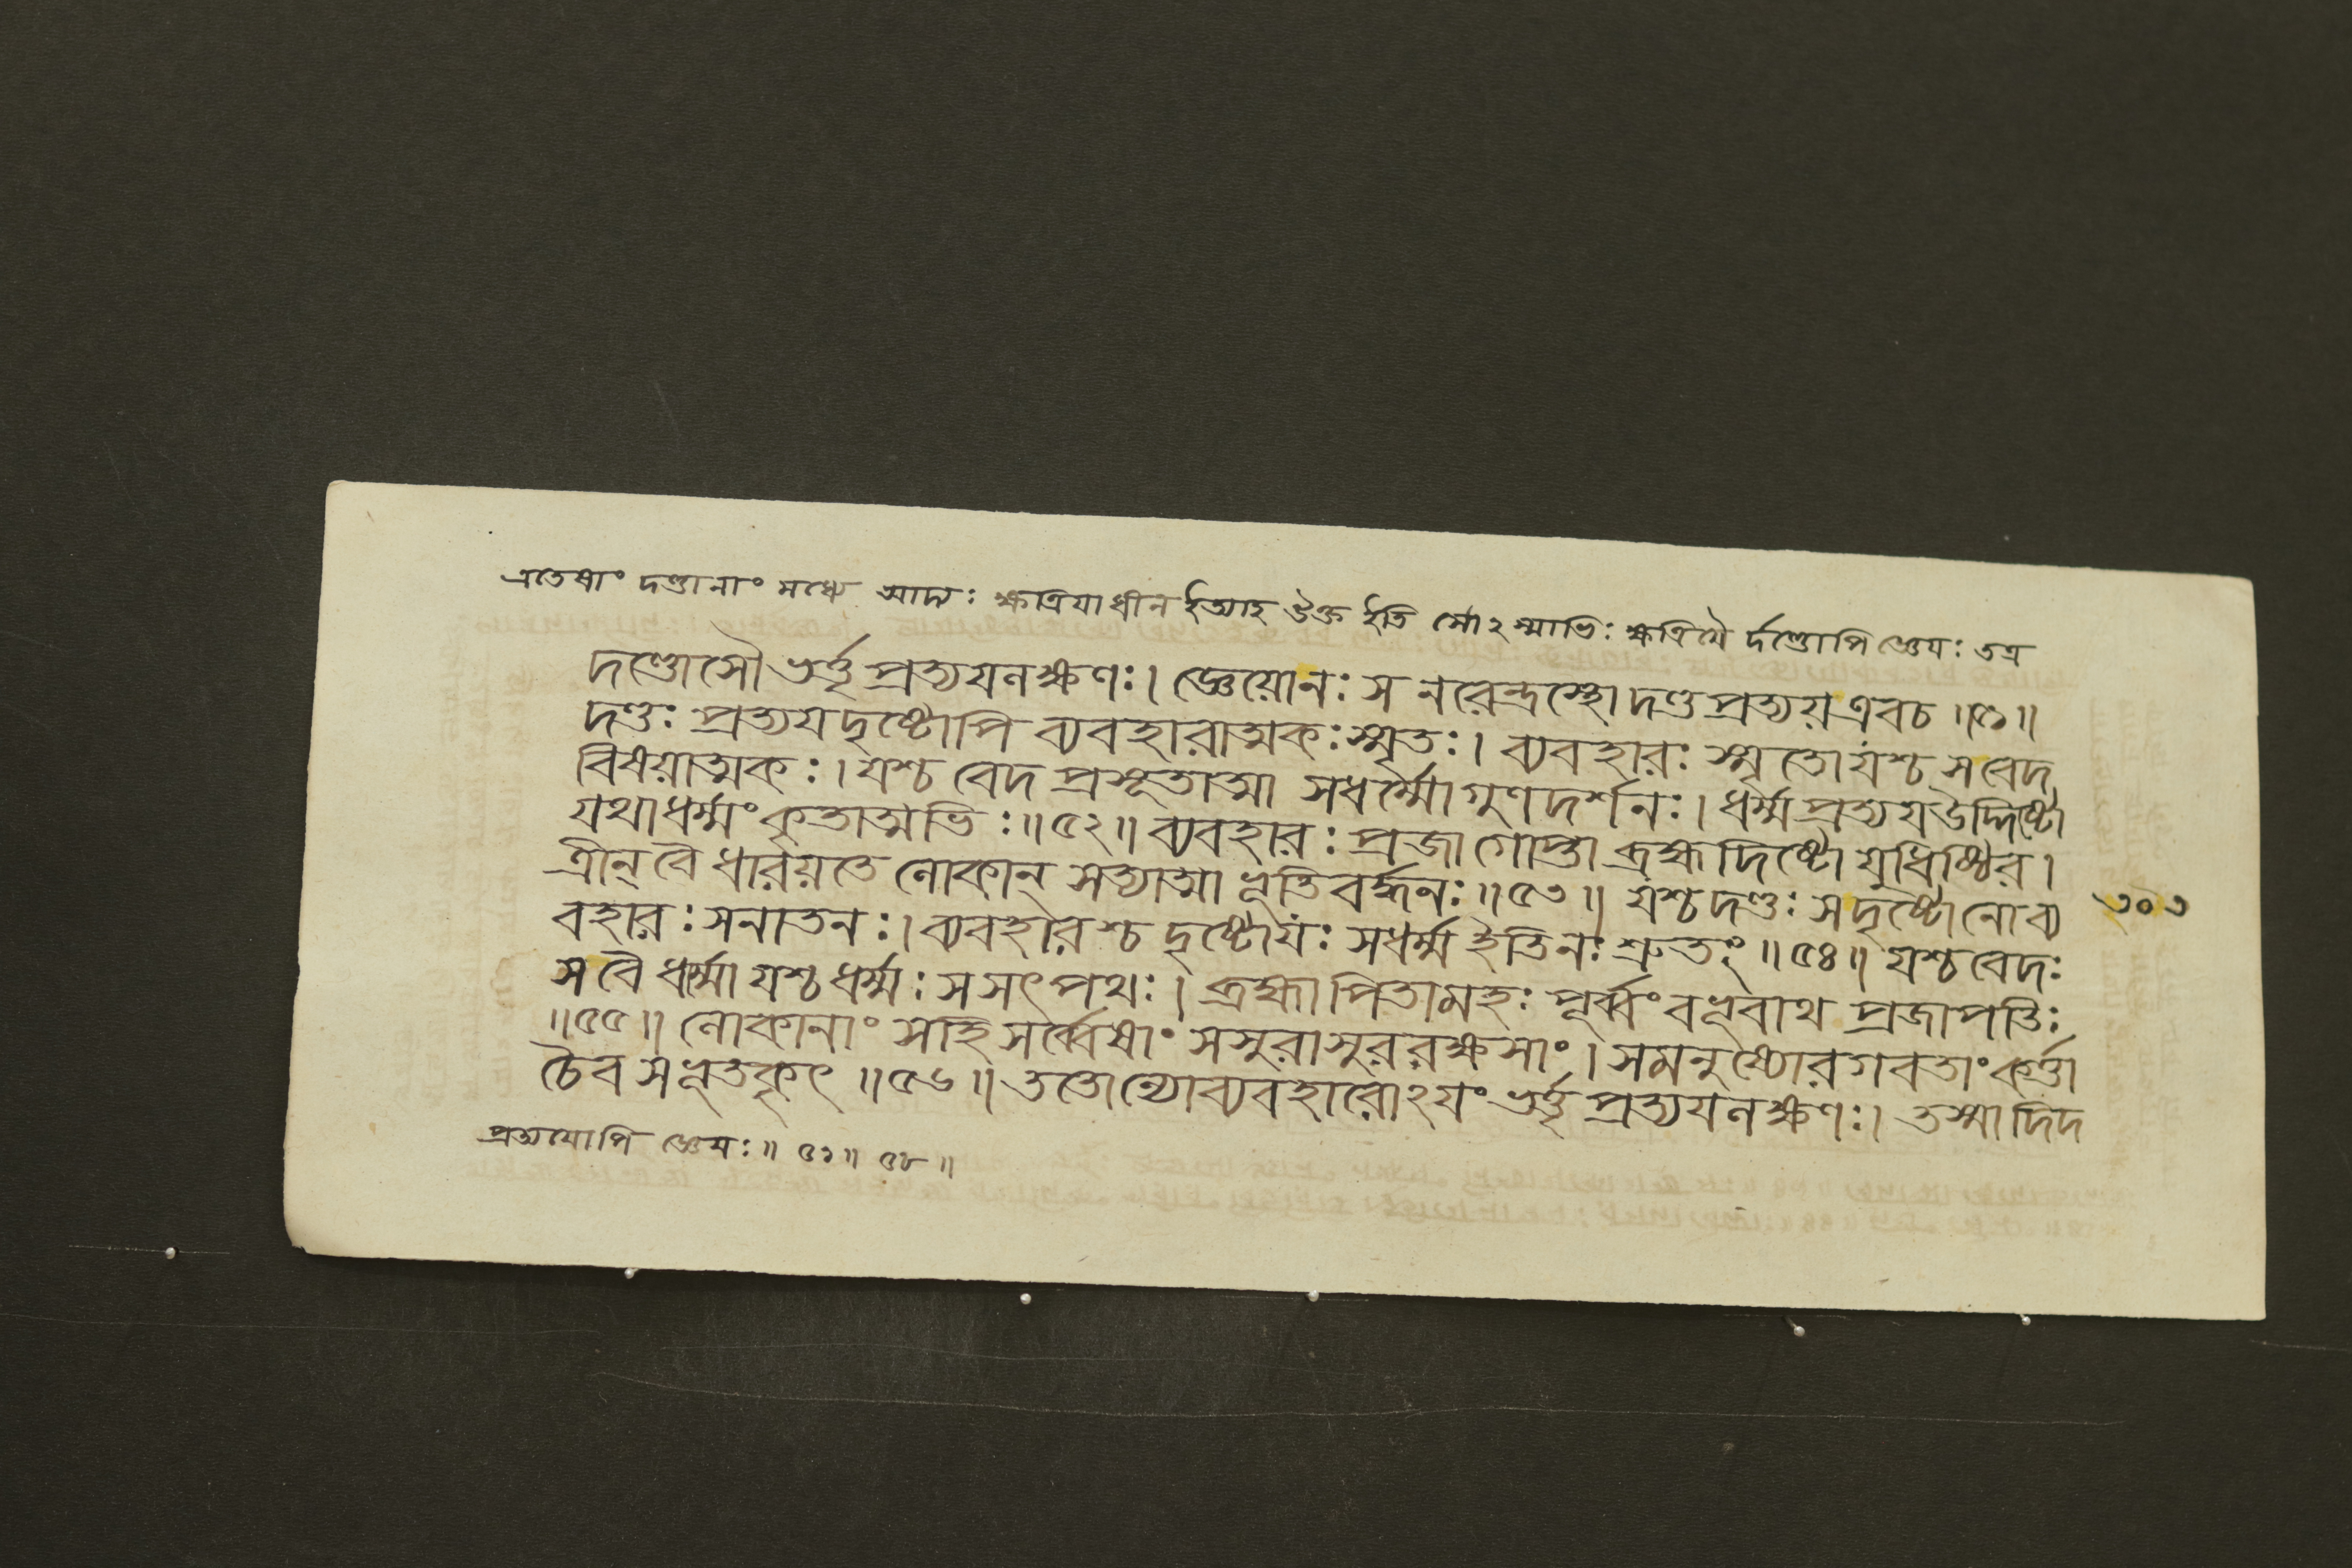 এতেষাং দণ্ডানাং মধ্যে আদ্যঃ ক্ষত্রিয়াধীন ইত্যাহ উক্ত ইতি সোঽস্মাভিঃ ক্ষত্রিয়ৈ র্দণ্ডোপি জ্ঞেয়ঃ তত্র
দণ্ডোসৌ ভর্ত্তৃপ্রত্যয়লক্ষণঃ। জ্ঞেয়োনঃ স নরেন্দ্রস্থো দণ্ডপ্রত্যয়এবচ॥৫১॥
দণ্ডঃ প্রত্যয়দৃষ্টোপি ব্যবহারাত্মকঃস্মৃতঃ। ব্যবহারঃ স্মৃতোযশ্চ সবেদ
বিষয়াত্মকঃ। যশ্চ বেদ প্রসূতাত্মা সধর্ম্মো গুণদর্শনঃ। ধর্ম্মপ্রত্যয়উদ্দিষ্টো
যথাধর্ম্মং কৃতাত্মভিঃ॥৫২॥ ব্যবহারঃ প্রজাগোপ্তা ব্রহ্মদিষ্টো যুধিষ্ঠির।
ত্রীন্ বৈ ধারয়তে লোকান্ সত্যাত্মা ভূতিবর্দ্ধনঃ॥৫৩॥ যশ্চদণ্ডঃ সদৃষ্টোনোব্য
৩০৩
বহারঃ সনাতনঃ। ব্যবহারশ্চ দৃষ্টোযঃ সধর্ম্ম ইতিনঃ শ্রুতং॥৫৪॥ যশ্চবেদঃ
স বৈ ধর্ম্মো যশ্চধর্ম্মঃ স সৎপথঃ। ব্রহ্মা পিতামহঃ পূর্ব্বং বভূবাথ প্রজাপতিঃ
॥৫৫॥ লোকানাং সহি সর্ব্বেষাং সসুরাসুররক্ষসাং। সমনুষ্যোরগবতাং কর্ত্তা
চৈব সভূতকৃৎ॥৫৬॥ ততোন্যোব্যবহারোঽয়ং ভর্ত্তৃপ্রত্যয়লক্ষণঃ। তস্মাদিদ
প্রত্যয়োপি জ্ঞেয়ঃ॥ ৫১॥ ৫৮॥